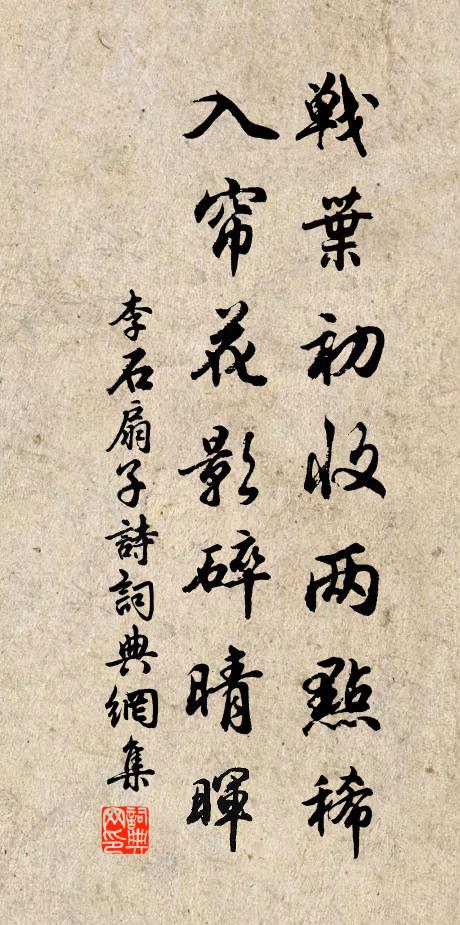 戰葉初收两點稀
入帘花影碎晴暉
李石扇子詩詞典網集
詞典网印